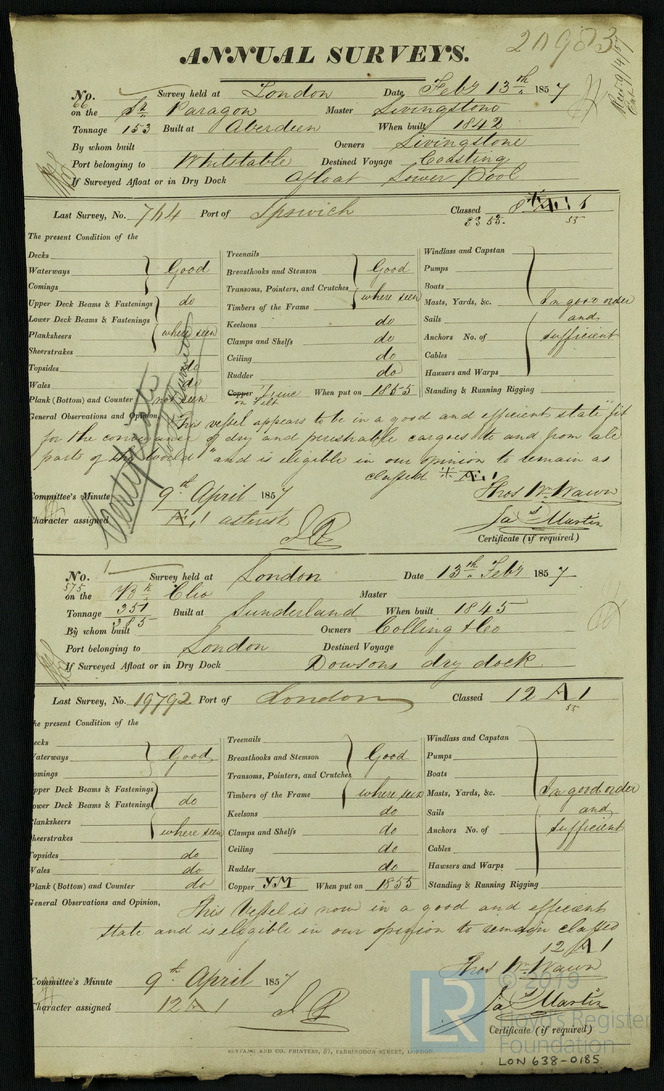 20983
ANNUAL SURVEYS.
No. 66 Survey held at London Date Feby 13th 1857
on the Sr. Paragon Master Livingstone
Tonnage 153 Built at Aberdeen When built 1842
By whom built Owners Livingstone
Port belonging to Whitstable Destined Voyage Coasting
If Surveyed Afloat or in Dry Dock Afloat Lower Pool
Last Survey, No. 744 Port of Ipswich Classed A 1
55
The present Condition of the
Decks
Waterways Good
Comings
Upper Deck Beams & Fastenings do
Lower Deck Beams & Fastenings
Planksheers where seen
Sheerstrakes
Topsides do
Wales do
Plank (Bottom) and Counter not seen
Treenails
Breasthooks and Stemson Good
Transoms, Pointers, and Crutches
Timbers of the Frame where seen
Keelsons do
Clamps and Shelfs do
Ceiling do
Rudder do
Copper When put on 1855
on Felt
Windlass and Capstan
Pumps
Boats
Masts, Yards, &c. In good order
Sails and
Anchors No. of sufficient
Cables
Hawsers and Warps
Standing & Running Rigging
General Observations and Opinion, This vessel appears to be in a good and efficient state "fit
for the conveyance of dry and perishable cargoes to and from all
parts of the world" and is eligible in our opinion to remain as
classed * A 1
Certificate
Committee's Minute 9th April 1857 Thos Wm Wawn
Character assigned A 1 asterisk Jas Martin
Certificate (if required)
No. 575 Survey held at London Date 13th Feby 1857
on the Bn Clio Master
Tonnage 351 Built at Sunderland When built 1845
385
By whom built Owners Colling & Co
Port belonging to London Destined Voyage
If Surveyed Afloat or in Dry Dock Dowsons dry dock
Last Survey, No. 19792 Port of London Classed 12 A 1
55
he present Condition of the
ecks
aterways Good
omings
pper Deck Beams & Fastenings do
ower Deck Beams & Fastenings
lanksheers where seen
heerstrakes
opsides do
Wales do
Plank (Bottom) and Counter do
Treenails
Breasthooks and Stemson Good
Transoms, Pointers, and Crutches
Timbers of the Frame where seen
Keelsons do
Clamps and Shelfs do
Ceiling do
Rudder do
Copper YM When put on 1855
Windlass and Capstan
Pumps
Boats
Masts, Yards, &c. In good order
Sails and
Anchors No. of sufficient
Cables
Hawsers and Warps
Standing & Running Rigging
General Observations and Opinion, This Vessel is now in a good and efficient
state and is eligible in our opinion to remain classed
12 A 1
Committee's Minute 9th April 1857 Thos Wm Wawn
Character assigned 12 A 1 Jas Martin
Certificate (if required)
LR © 2019
Lloyd's Register
Foundation
LON 638-0185